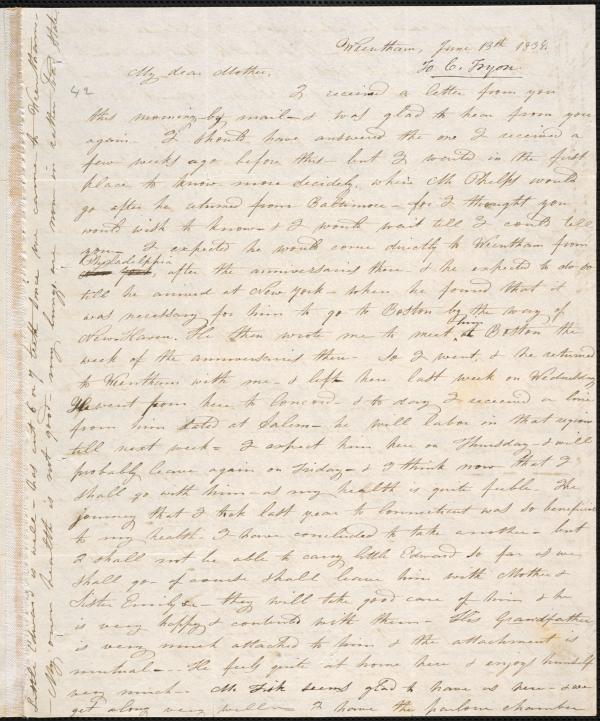 Wrentham, June 13th 1838.
To C. Tryon
My dear Mother,
42
I received a letter from you
this morning by mail - & was glad to hear from you
again. I should have answered the one I received a
few weeks ago before this - but I would in the first
place to know more decidedly when Mr Phelps would
go after he returned from Baltimore - for I thought you
would wish to know - & I would wait till I could tell
you - I expected he would come directly to Wrentham from
Philadelphia
New York, after the anniversaries there - & he expected to do so
till he arrived at New York - where he found that it
was necessary for him to go to Boston by the way of
New Haven. He then wrote me to meet him at Boston the
week of the anniversaries there - So I went, & he returned
to Wrentham with me - & left here last week on Wednesday
He went from here to Concord - & to day I received a line
from him dated at Salem - he will labor in that region
till next week - I expect him here on Thursday - & will
probably leave again on Friday - & I think now that I
shall go with him - as my health is quite feeble. The
journey that I took last year to Connecticut was so beneficial
to my health - I have concluded to take another - but
I shall not be able to carry little Edward so far as we
shall go - of course shall leave him with Mother &
Sister Emily - they will take good care of him & he
is very happy & contented with them - His Grandfather
is very much attached to him & the attachment is
mutual - He feels quite at home here & enjoys himself
very much - Mr Fisk seems glad to have us here - & we
get along very well - I have the parlour chamber
Little Edward is well - has cut 6 or 7 teeth since we came to Wrentham -
- My own health is not good - my lungs are now in rather bad state